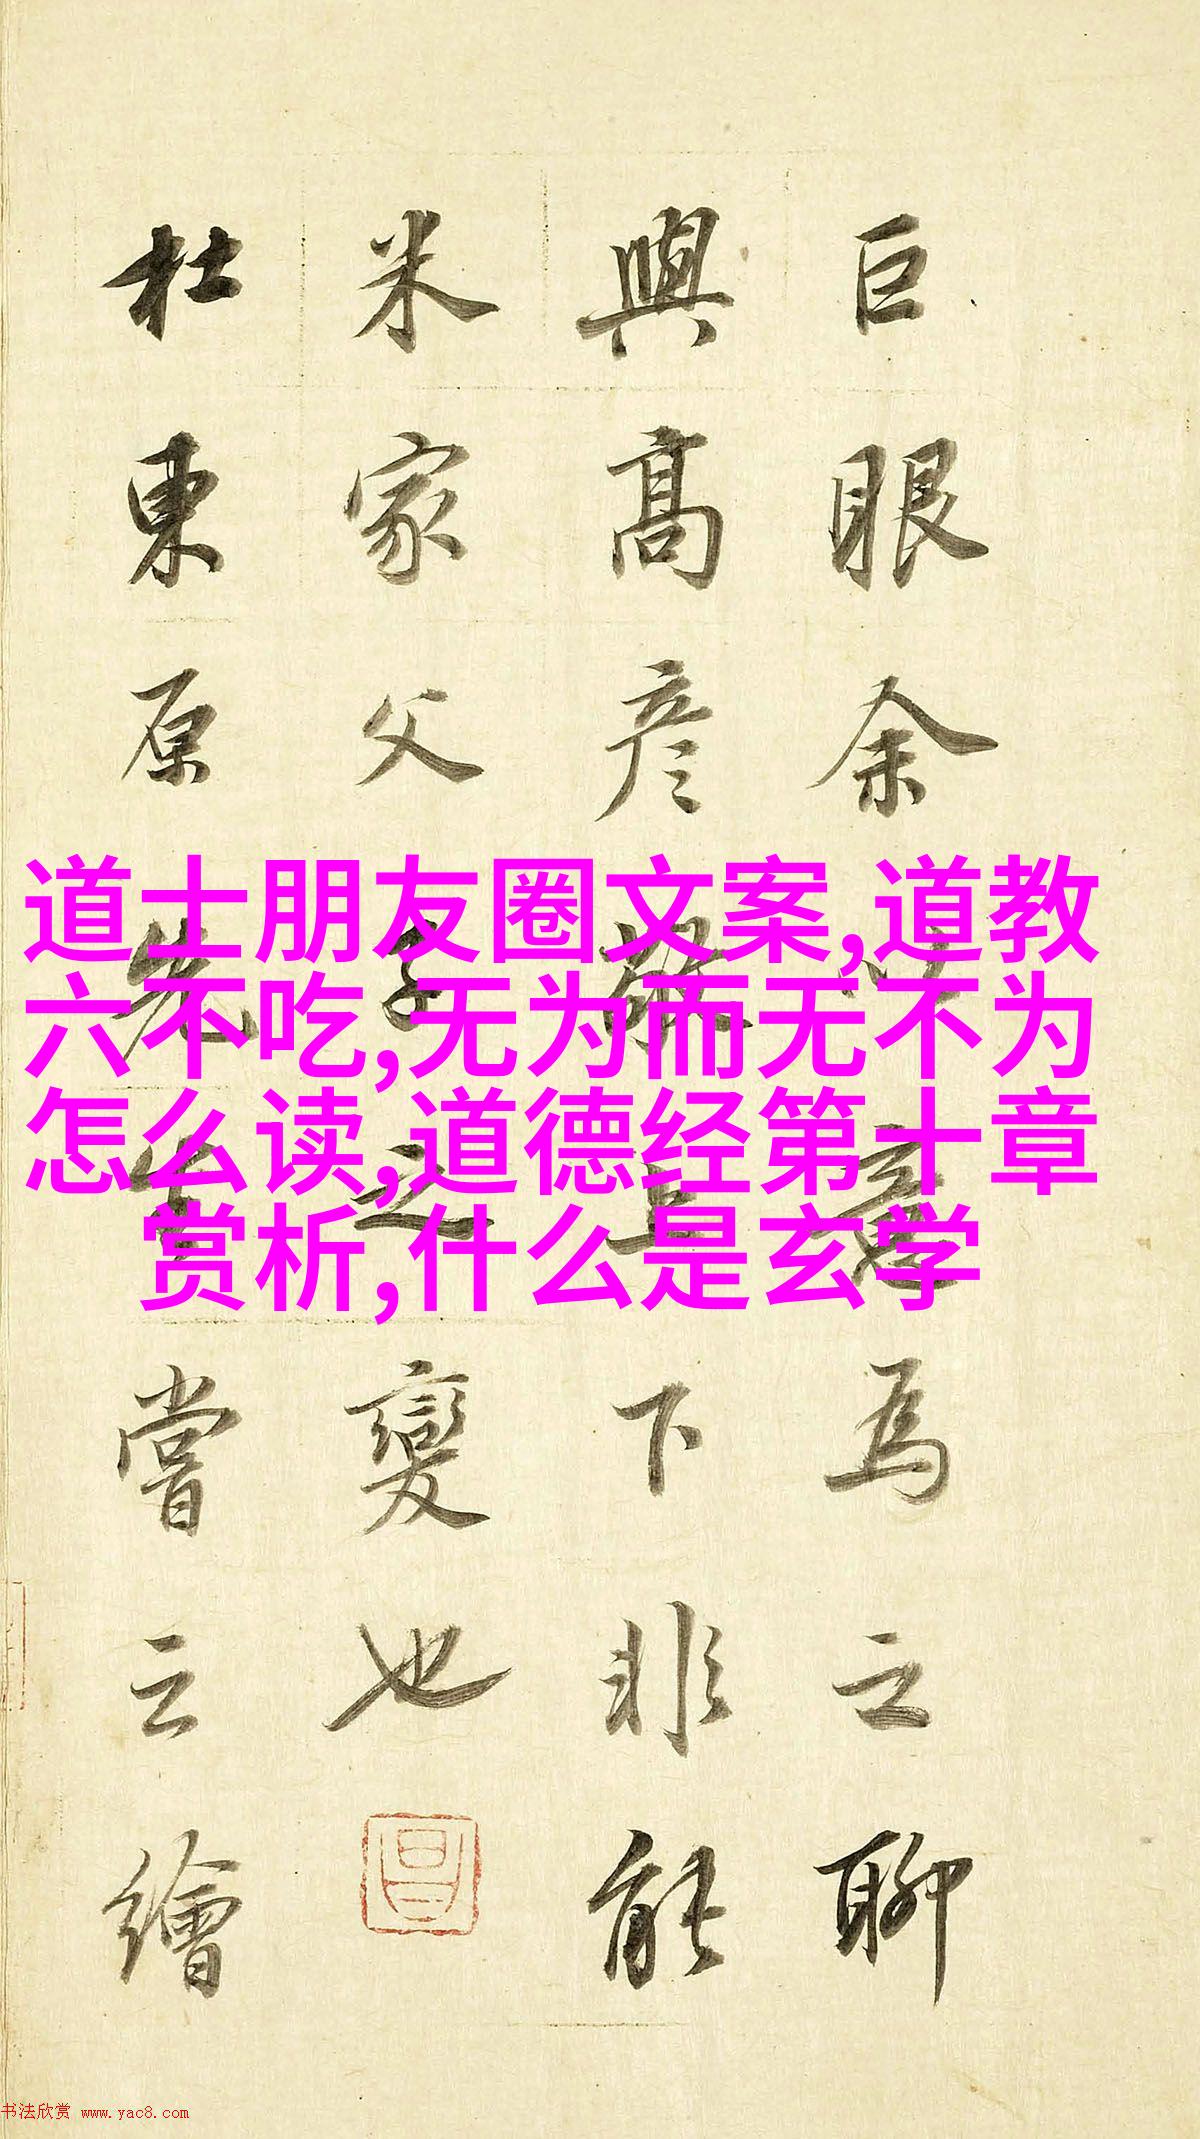 巨眼余以意為之聊
與高彦敬上下非能
米家父子之變也
昌
杜東原先生嘗云繪
道士朋友圈文案,道教
六不吃,无为而无不为
怎么读,道德经第十章
赏析,什么是玄学
书法欣赏 www.yac8.com